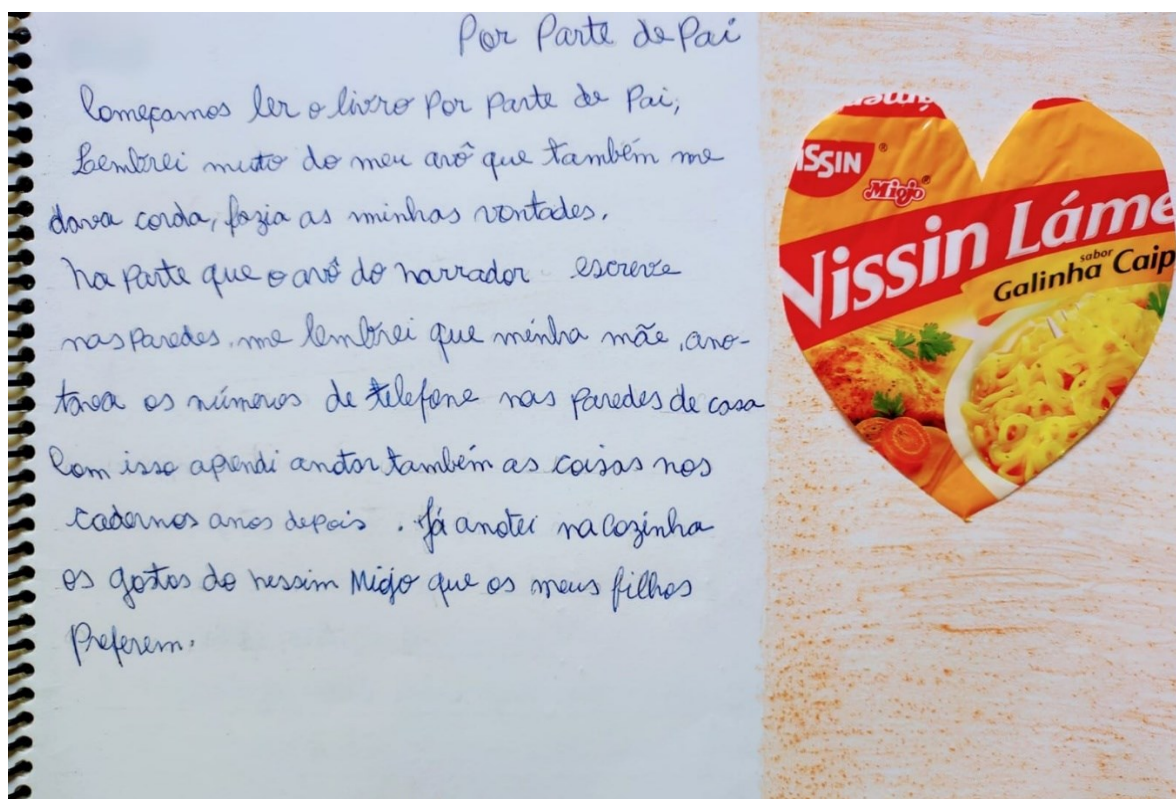 Por Parte de Pai
Começamos ler o livro Por Parte de Pai,
Lembrei muto do meu avô que também me
dava corda, fazia as minhas vontades.
Na Parte que o avô do narrador escreve
nas Paredes. me lembrei que minha mãe, ano-
tava os números de telefone nas Paredes de casa
Com isso aprendi anotar também as coisas nos
cadernos anos depois. Já anotei na Cozinha
os gostos do nessim Miojo que os meus filhos
Preferem.
NISSIN
Miojo
Nissin Láme
sabor
Galinha Caip